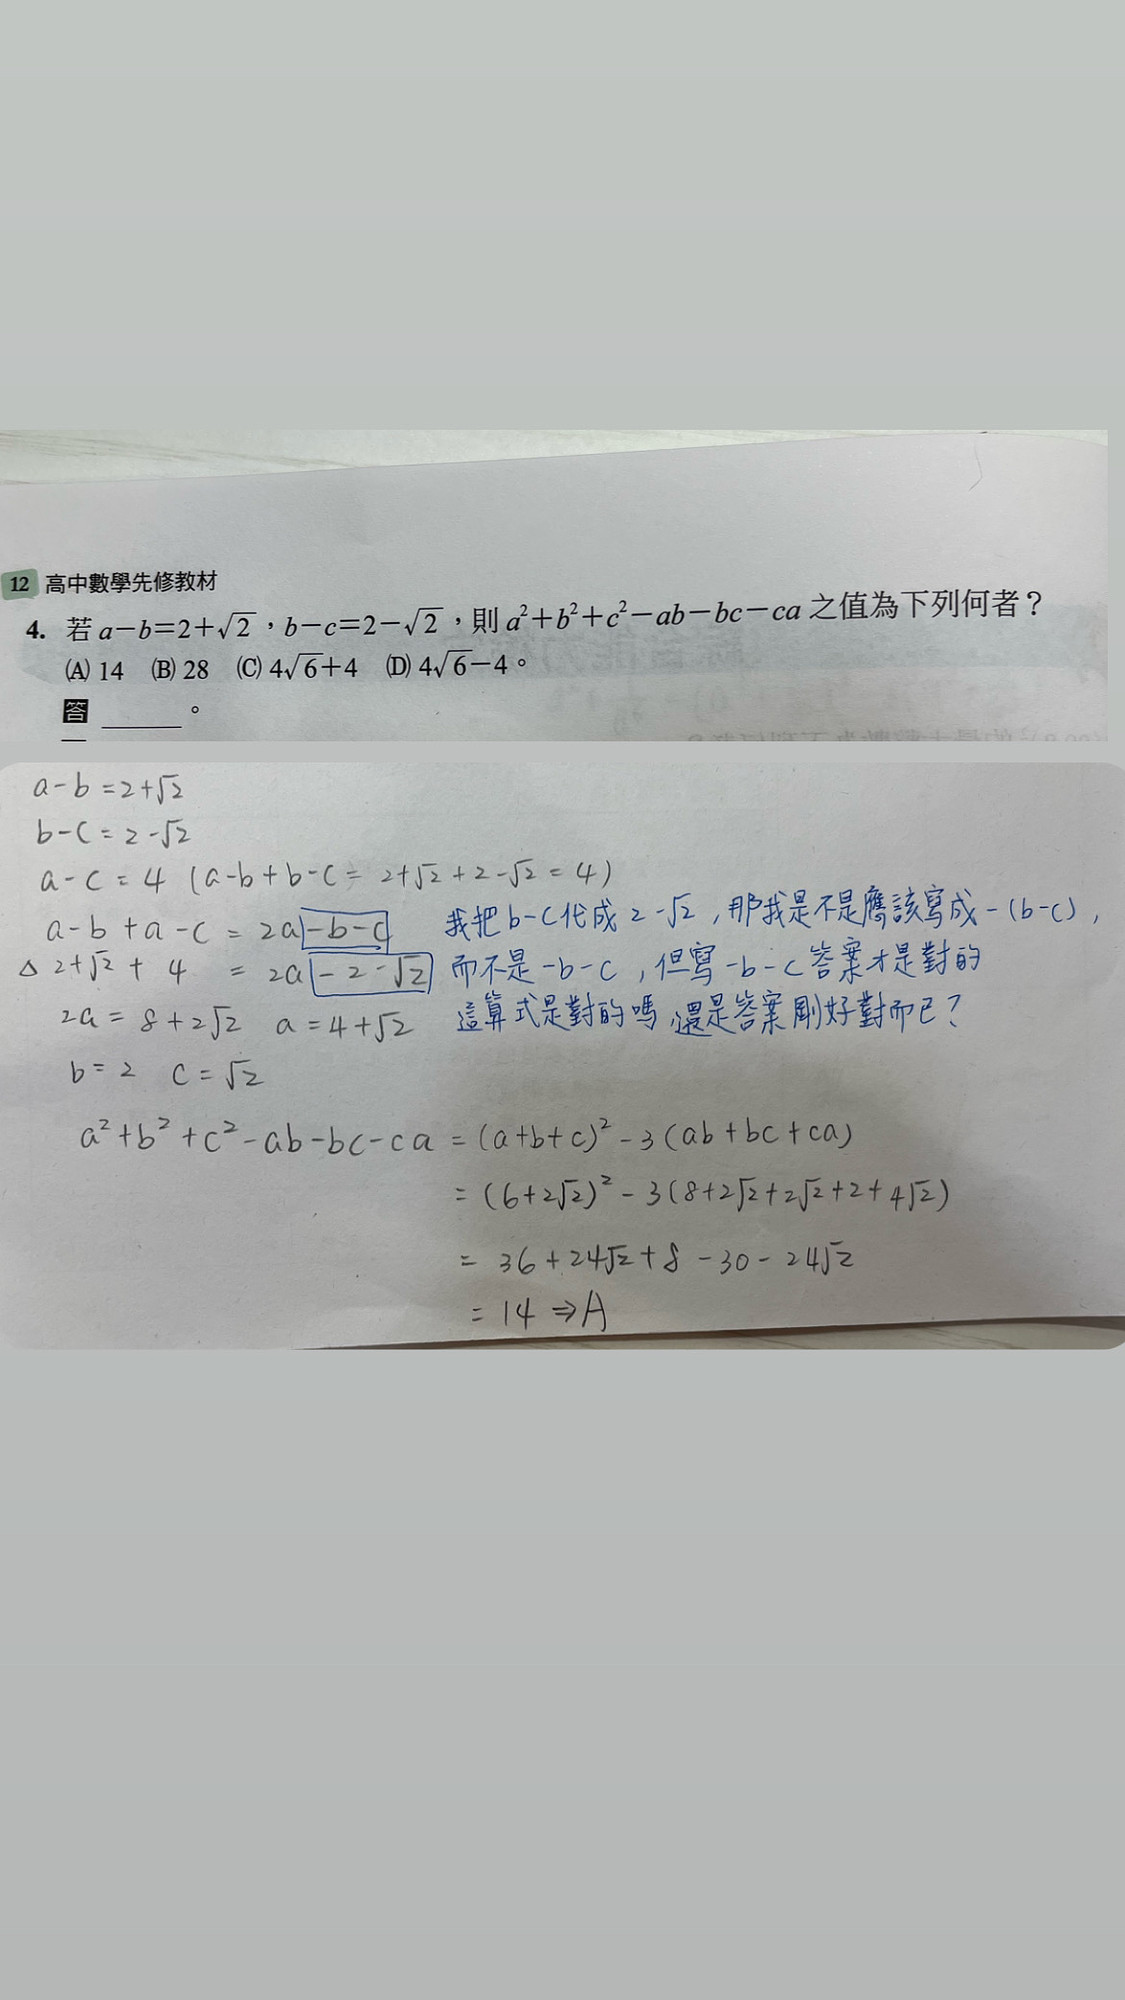 12 高中數學先修教材
4. 若 a－b=2+√2，b－c=2－√2，則 a²+b²+c²－ab－bc－ca 之值為下列何者？
(A) 14 (B) 28 (C) 4√6+4 (D) 4√6－4。
答 ______。
a-b=2+√2
b-c=2-√2
a-c=4 (a-b+b-c= 2+√2+2-√2=4)
a-b+a-c = 2a-b-c 我把b-c代成2-√2，那我是不是應該寫成-(b-c)，
△ 2+√2+4 = 2a-2-√2 而不是-b-c，但寫-b-c答案才是對的
2a=8+2√2 a=4+√2 這算式是對的嗎，還是答案剛好對而已？
b=2 c=√2
a²+b²+c²-ab-bc-ca = (a+b+c)²-3(ab+bc+ca)
= (6+2√2)²-3(8+2√2+2√2+2+4√2)
= 36+24√2+8-30-24√2
= 14 ⇒A